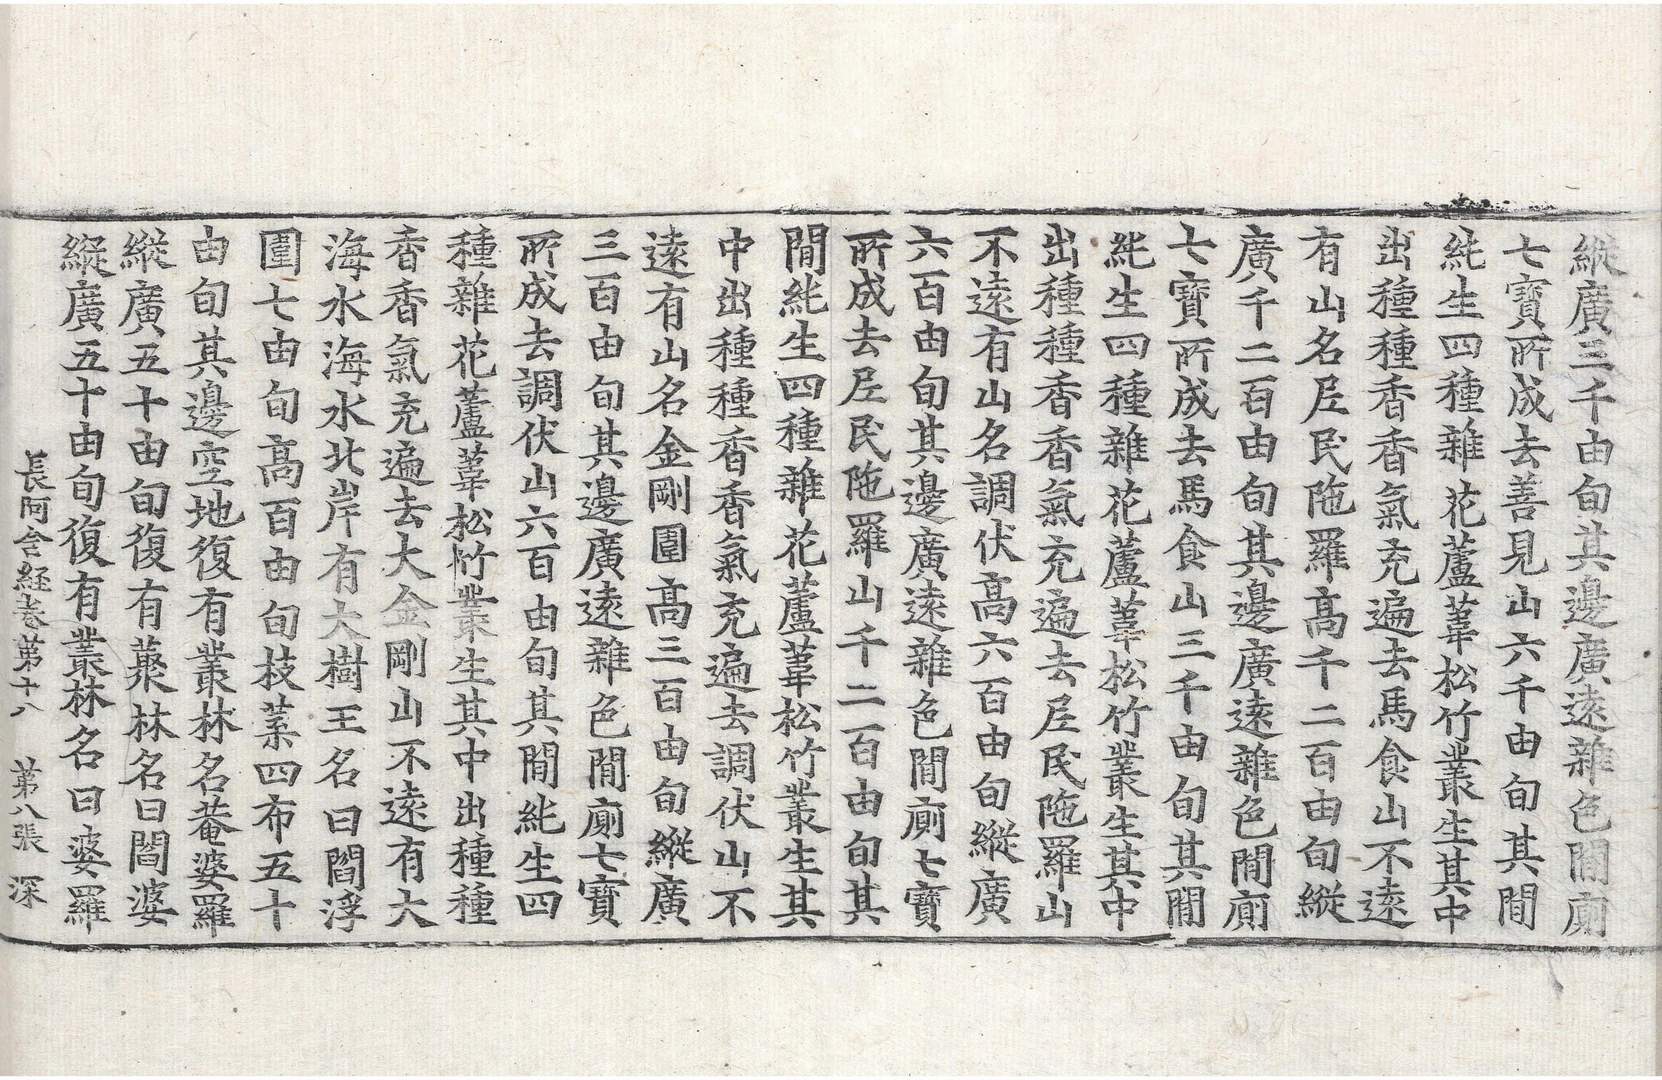 縱廣三千由旬其邊廣遠雜色間廁
七寶所成去善見山六千由旬其間
純生四種雜花蘆葦松竹叢生其中
出種種香香氣充遍去馬食山不遠
有山名𡰱民陁羅高千二百由旬縱
廣千二百由旬其邊廣遠雜色間廁
七寶所成去馬食山三千由旬其間
純生四種雜花蘆葦松竹叢生其中
出種種香香氣充遍去𡰱民陁羅山
不遠有山名調伏高六百由旬縱廣
六百由旬其邊廣遠雜色間廁七寶
所成去𡰱民陁羅山千二百由旬其
間純生四種雜花蘆葦松竹叢生其
中出種種香香氣充遍去調伏山不
遠有山名金剛圍高三百由旬縱廣
三百由旬其邊廣遠雜色間廁七寶
所成去調伏山六百由旬其間純生四
種雜花蘆葦松竹叢生其中出種種
香香氣充遍去大金剛山不遠有大
海水海水北岸有大樹王名曰閻浮
圍七由旬高百由旬枝葉四布五十
由旬其邊空地復有叢林名菴婆羅
縱廣五十由旬復有藂林名曰閻婆
縱廣五十由旬復有叢林名曰婆羅
長阿含経卷第十八 第八張 深